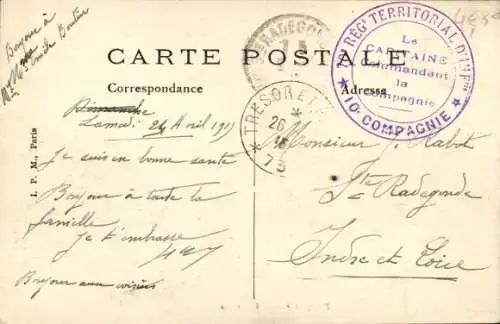 Bonjour à
CARTE POSTALE
Correspondance
Adresse
Dimanche
Samedi 24 Avril 1915
Je suis en bonne santé
Bonjour à toute la
famille
Je t'embrasse
Bonjour aux voisins
Monsieur J. Rabot
Ste Radegonde
Indre et Loire
I. P. M., Paris
TRESOR ET
26
73
RÉGT TERRITORIAL D'INFIE
Le
CAPITAINE
Commandant
la
Compagnie
10e COMPAGNIE